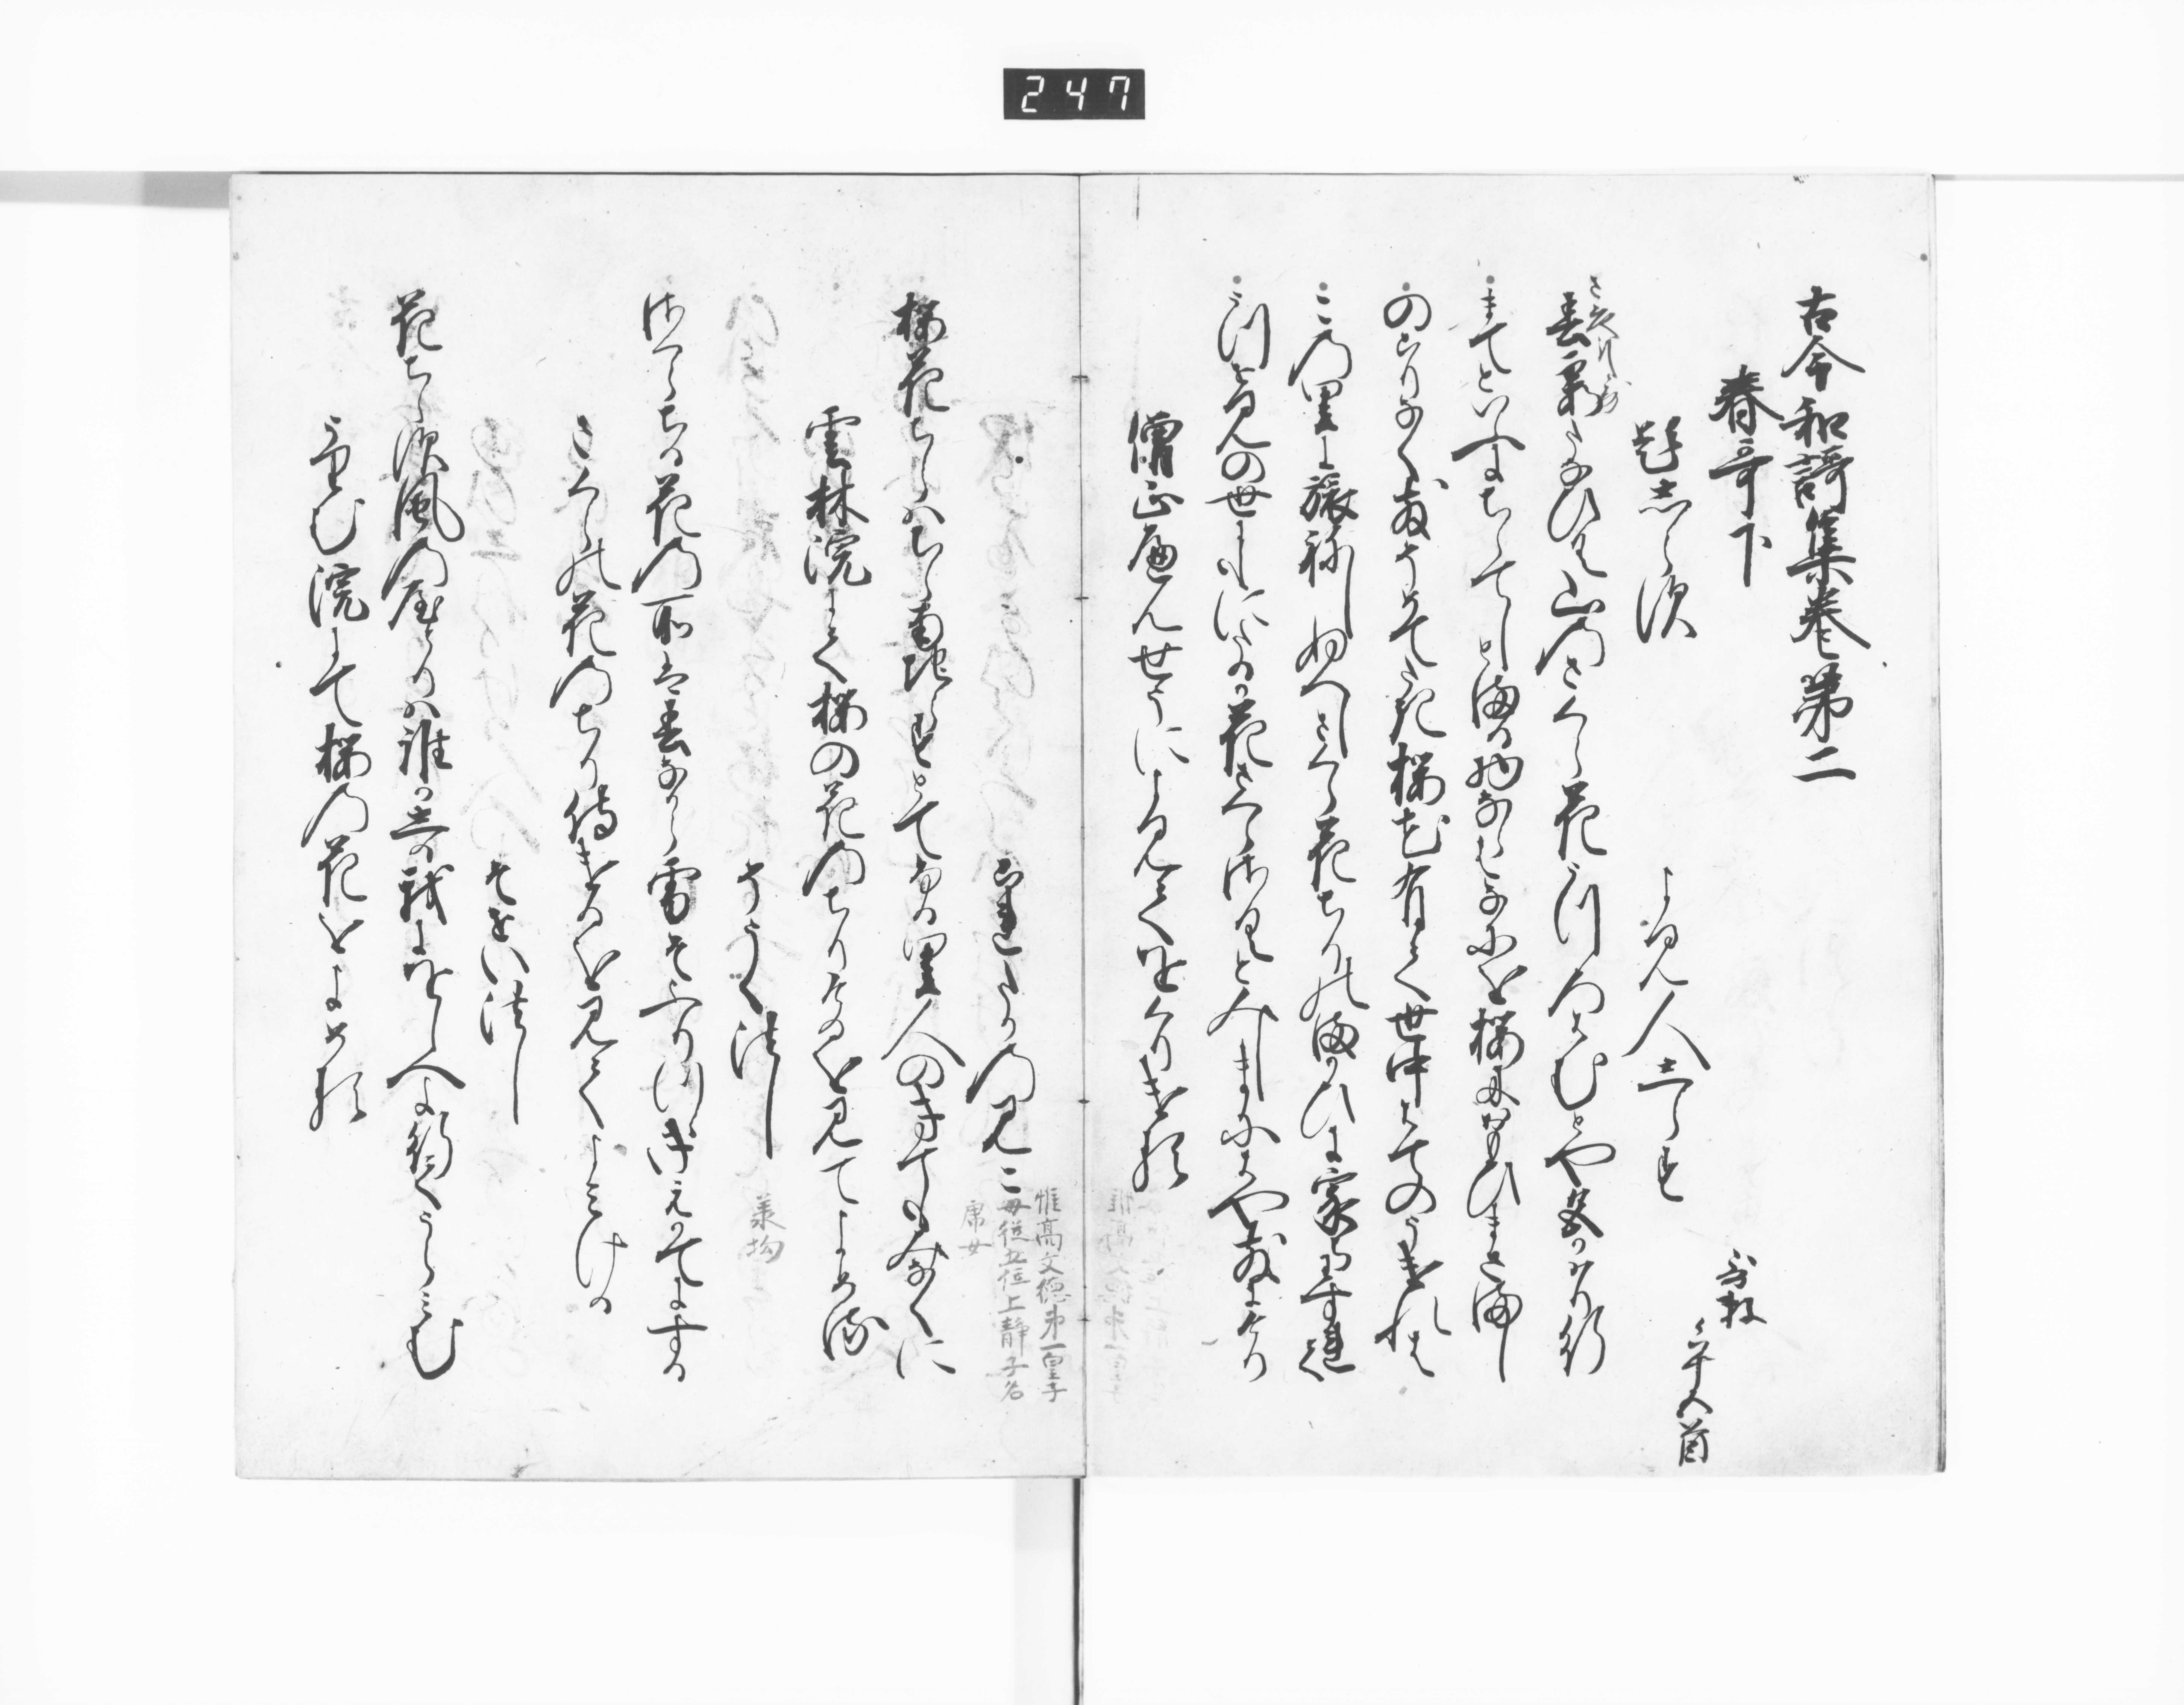 247
古今和謌集巻第二
春哥下
哥数
六十八首
題志らす
よみ人しらす
春霞たなひく山のさくら花うつろはむとや色かはり行
まてといふにちらてしとまる物ならはなにを桜に思ひまさまし
のこりなくちるそめてたき桜花有て世中はてのうけれは
この里に旅ねしぬへしさくら花ちりのまかひに家ちわすれて
うつせみの世にもにたるか花さくらさくとみしまにかつちりにけり
僧正へんせうによみてをくりける
これたかのみこ
惟高文徳第一皇子
母従五位上静子名
虎女
桜花ちらはちら南ちらすとてふる里人のきても見なくに
雲林院にて桜の花のちりけるを見てよめる
そうく法し
承均
桜ちる花の所は春なから雪そふりつゝきえかてにする
さくらの花のちり侍けるを見てよみける
そせい法し
花ちらす風のやとりは誰かしる我にをしへよ行てうらみむ
うりむ院にて桜の花をよめる